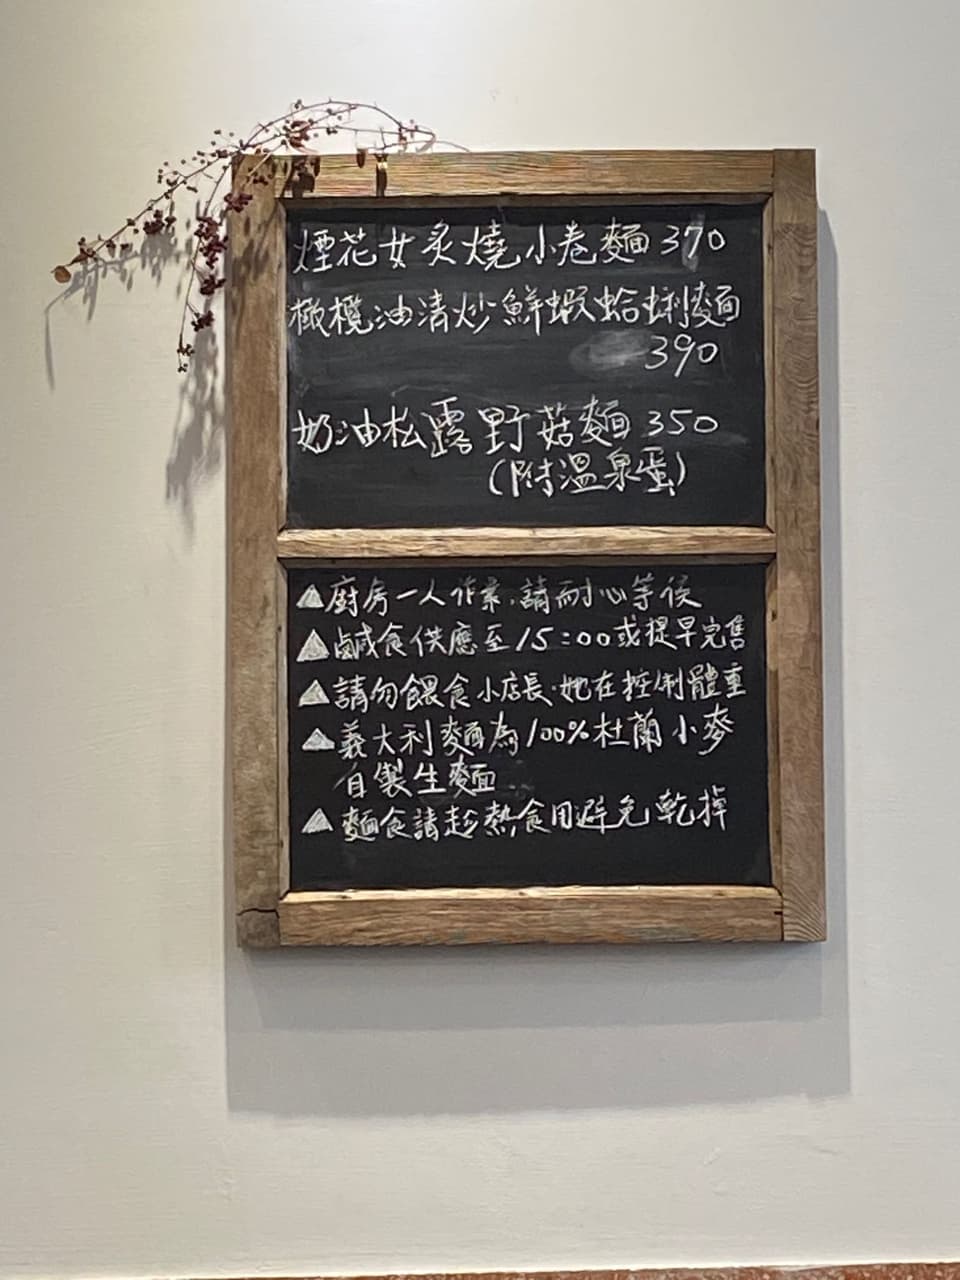 煙花女炙燒小卷麵 370
橄欖油清炒鮮蝦蛤蜊麵
390
奶油松露野菇麵 350
(附溫泉蛋)
▲廚房一人作業.請耐心等候
▲鹹食供應至15:00或提早完售
▲請勿餵食小店長.她在控制體重
▲義大利麵為100%杜蘭小麥
自製生麵
▲麵食請趁熱食用避免乾掉